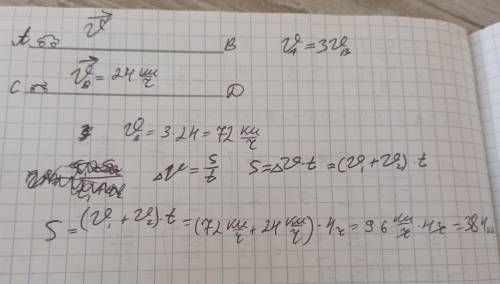 V
A B
V_A = 3V_B
V_B = 24 км/ч
C D
V_A = 3·24 = 72 км/ч
ΔV = S/t S = ΔV·t = (V₁ + V₂)·t
S = (V₁ + V₂)·t = (72 км/ч + 24 км/ч)·4ч = 96 км/ч·4ч = 384 км